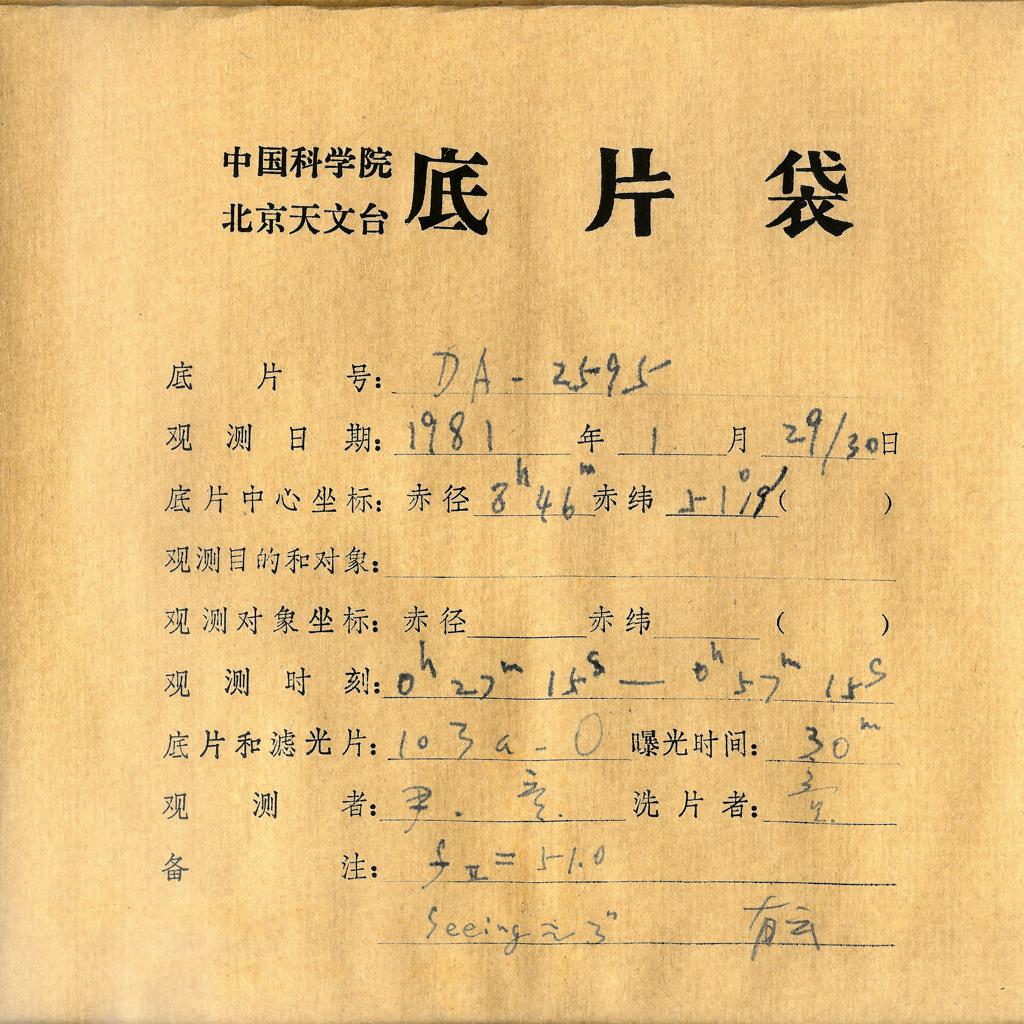 中国科学院
北京天文台
底片袋
底片号: DA-2595
观测日期: 1981年1月29/30日
底片中心坐标: 赤径 8h46m 赤纬 51°19′( )
观测目的和对象:
观测对象坐标: 赤径 赤纬 ( )
观测时刻: 0h27m15s — 0h57m15s
底片和滤光片: 103a-O 曝光时间: 30m
观测者: 尹.
洗片者:
备注: fII=51.0
Seeing≈3" 有云